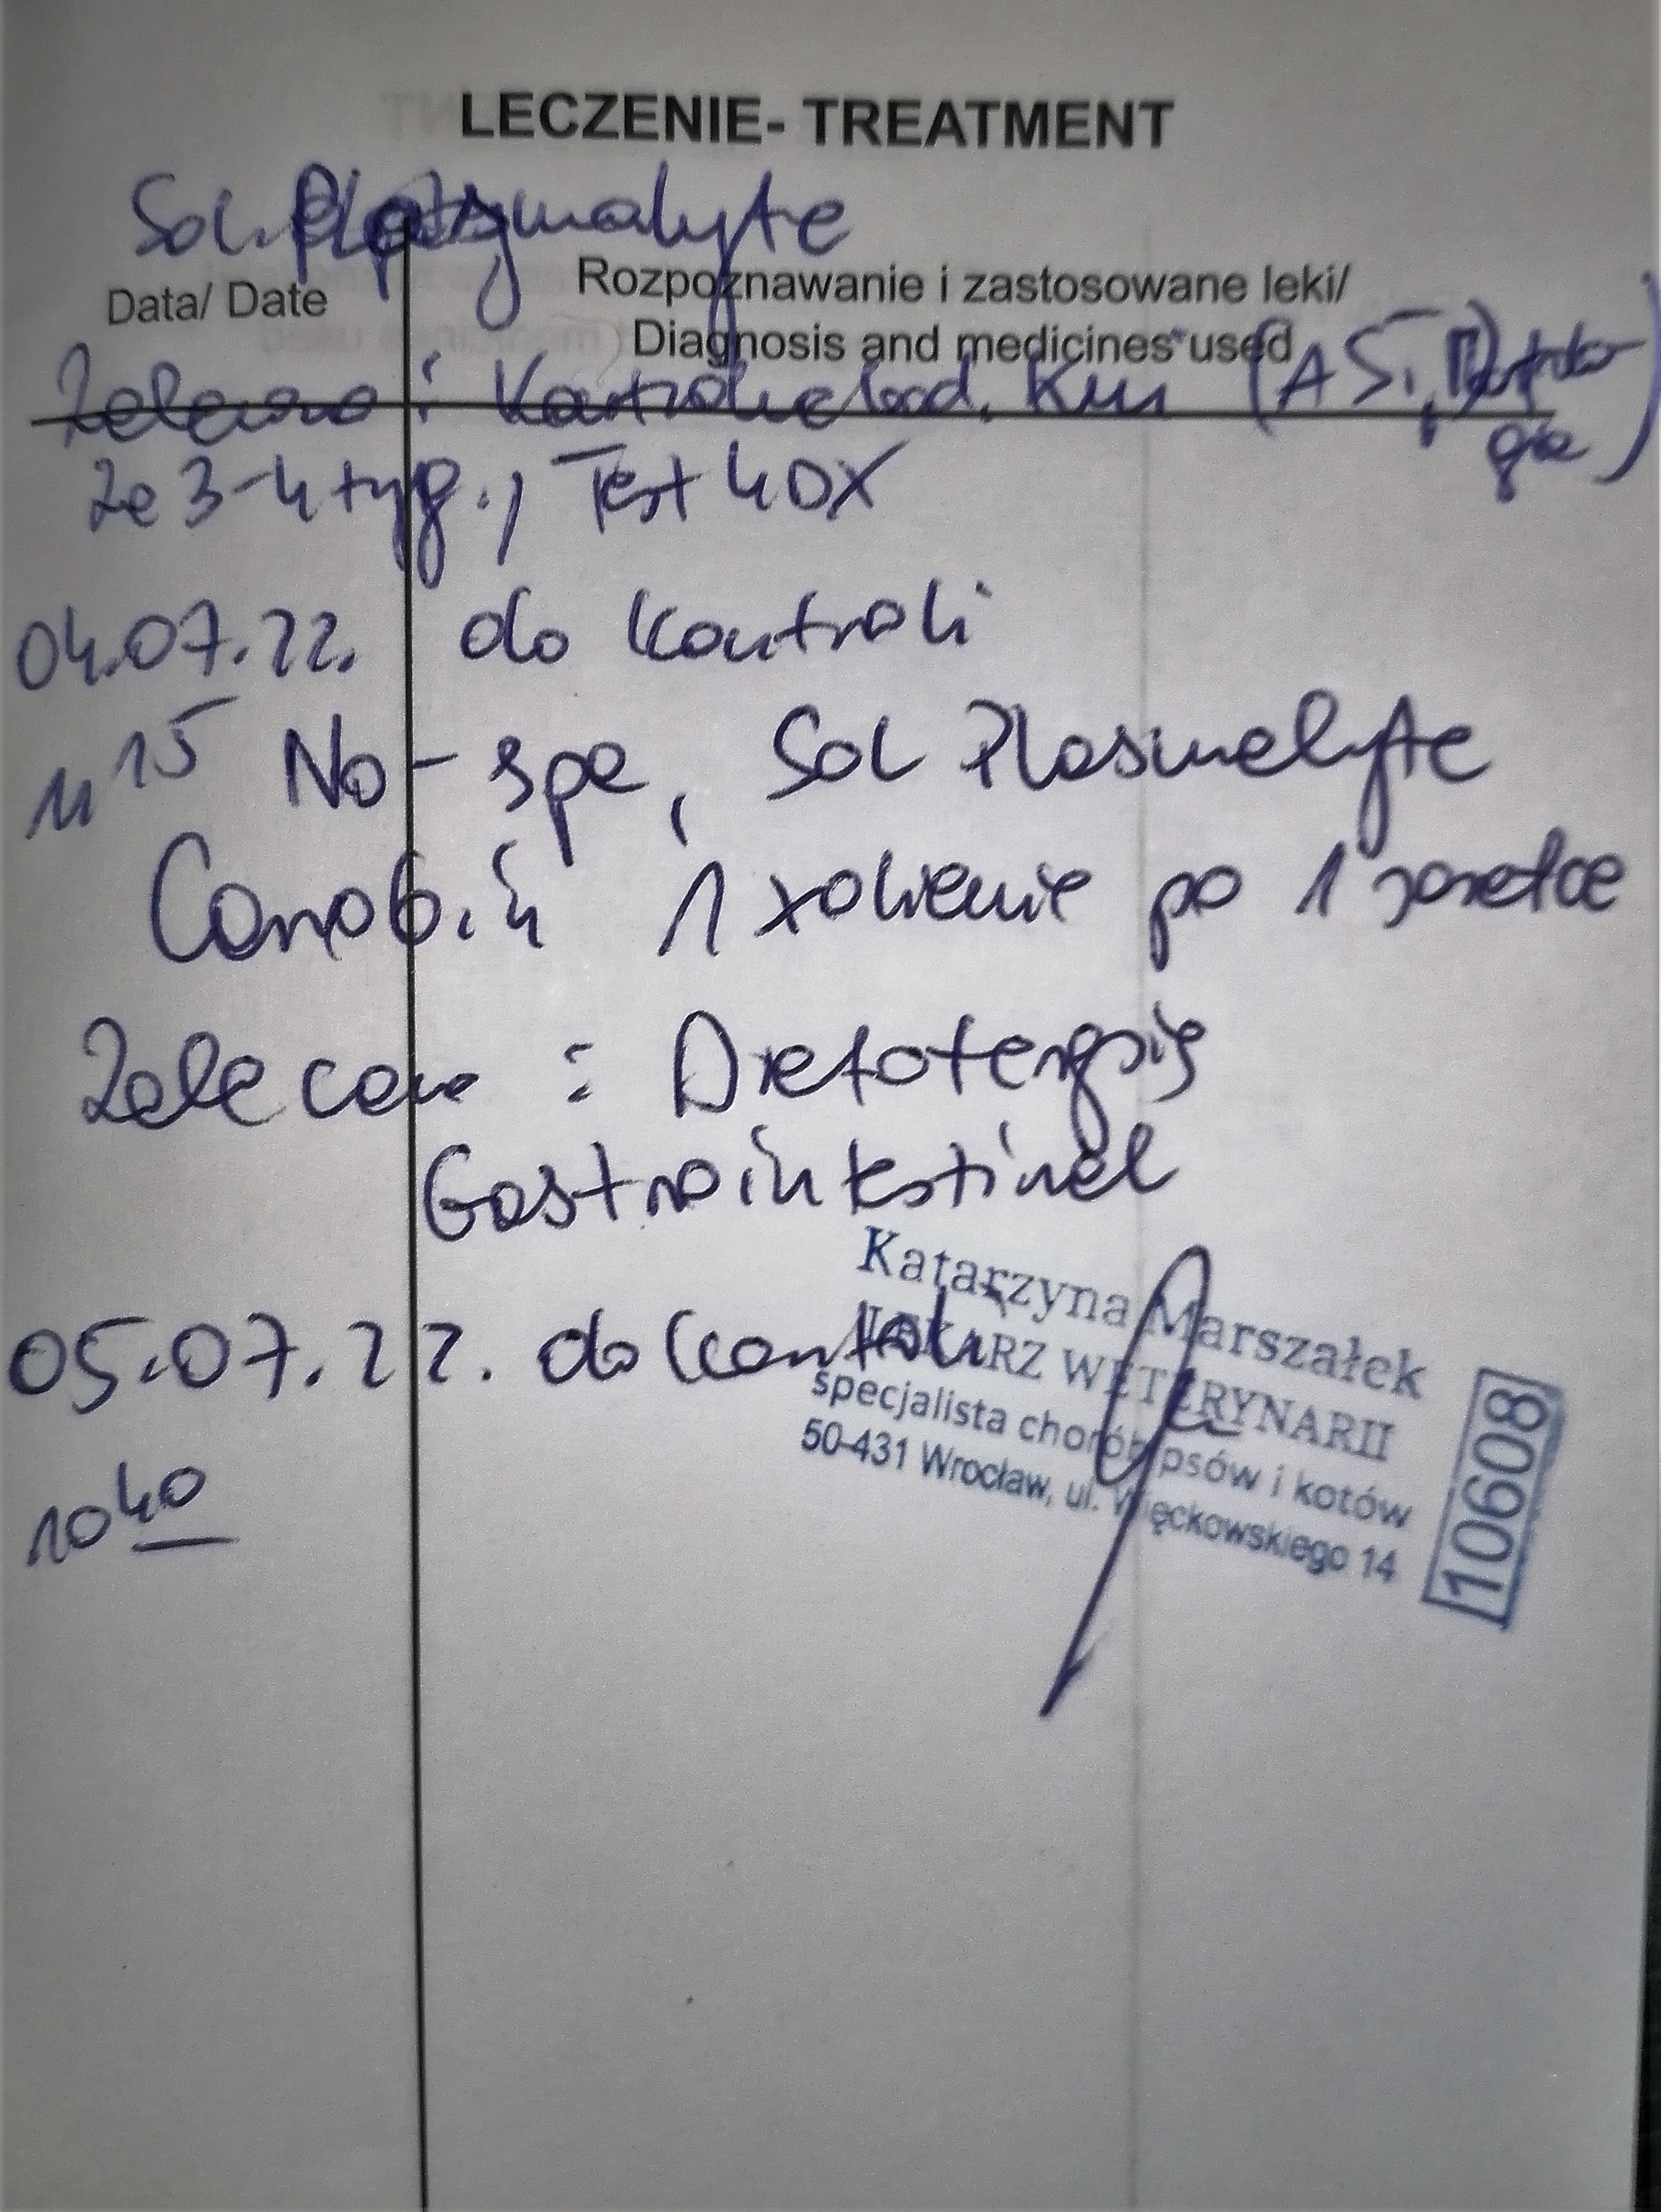 LECZENIE- TREATMENT
Sol. Plasmalyte
Data/ Date
Rozpoznawanie i zastosowane leki/
Diagnosis and medicines used
Zalecane : Kontrolne bad. krwi (
za 3-4 tyg., Test 4DX
04.07.22. do kontroli
11 15 No-spa, Sol Plasmalyte
1 x dziennie po 1
Zalecane : Dietoterapię
Gastrointestinal
Katarzyna Marszałek
LEKARZ WETERYNARII
05.07.22. do kontroli
specjalista chorób psów i kotów
50-431 Wrocław, ul. Więckowskiego 14
10608
10 40